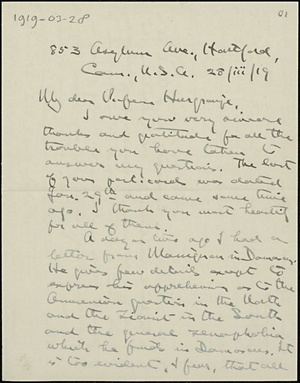 1919-03-28
01
853 Asylum Ave., Hartford,
Conn., U.S.A. 28/iii/19
My dear Professor Hurgronje,
I owe you very sincere
thanks and gratitude for all the
trouble you have taken to
answer my questions. The last
of your postcards was dated
Jan. 29th and came some time
ago. I thank you most heartily
for all of them.
A day or two ago I had a
letter from Massignon in Damascus.
He gives few details except to
express his apprehension as to the
Armenian question in the North
and the Zionist in the South
and the general xenophobia
which he finds in Damascus. It
is too evident, I fear, that all